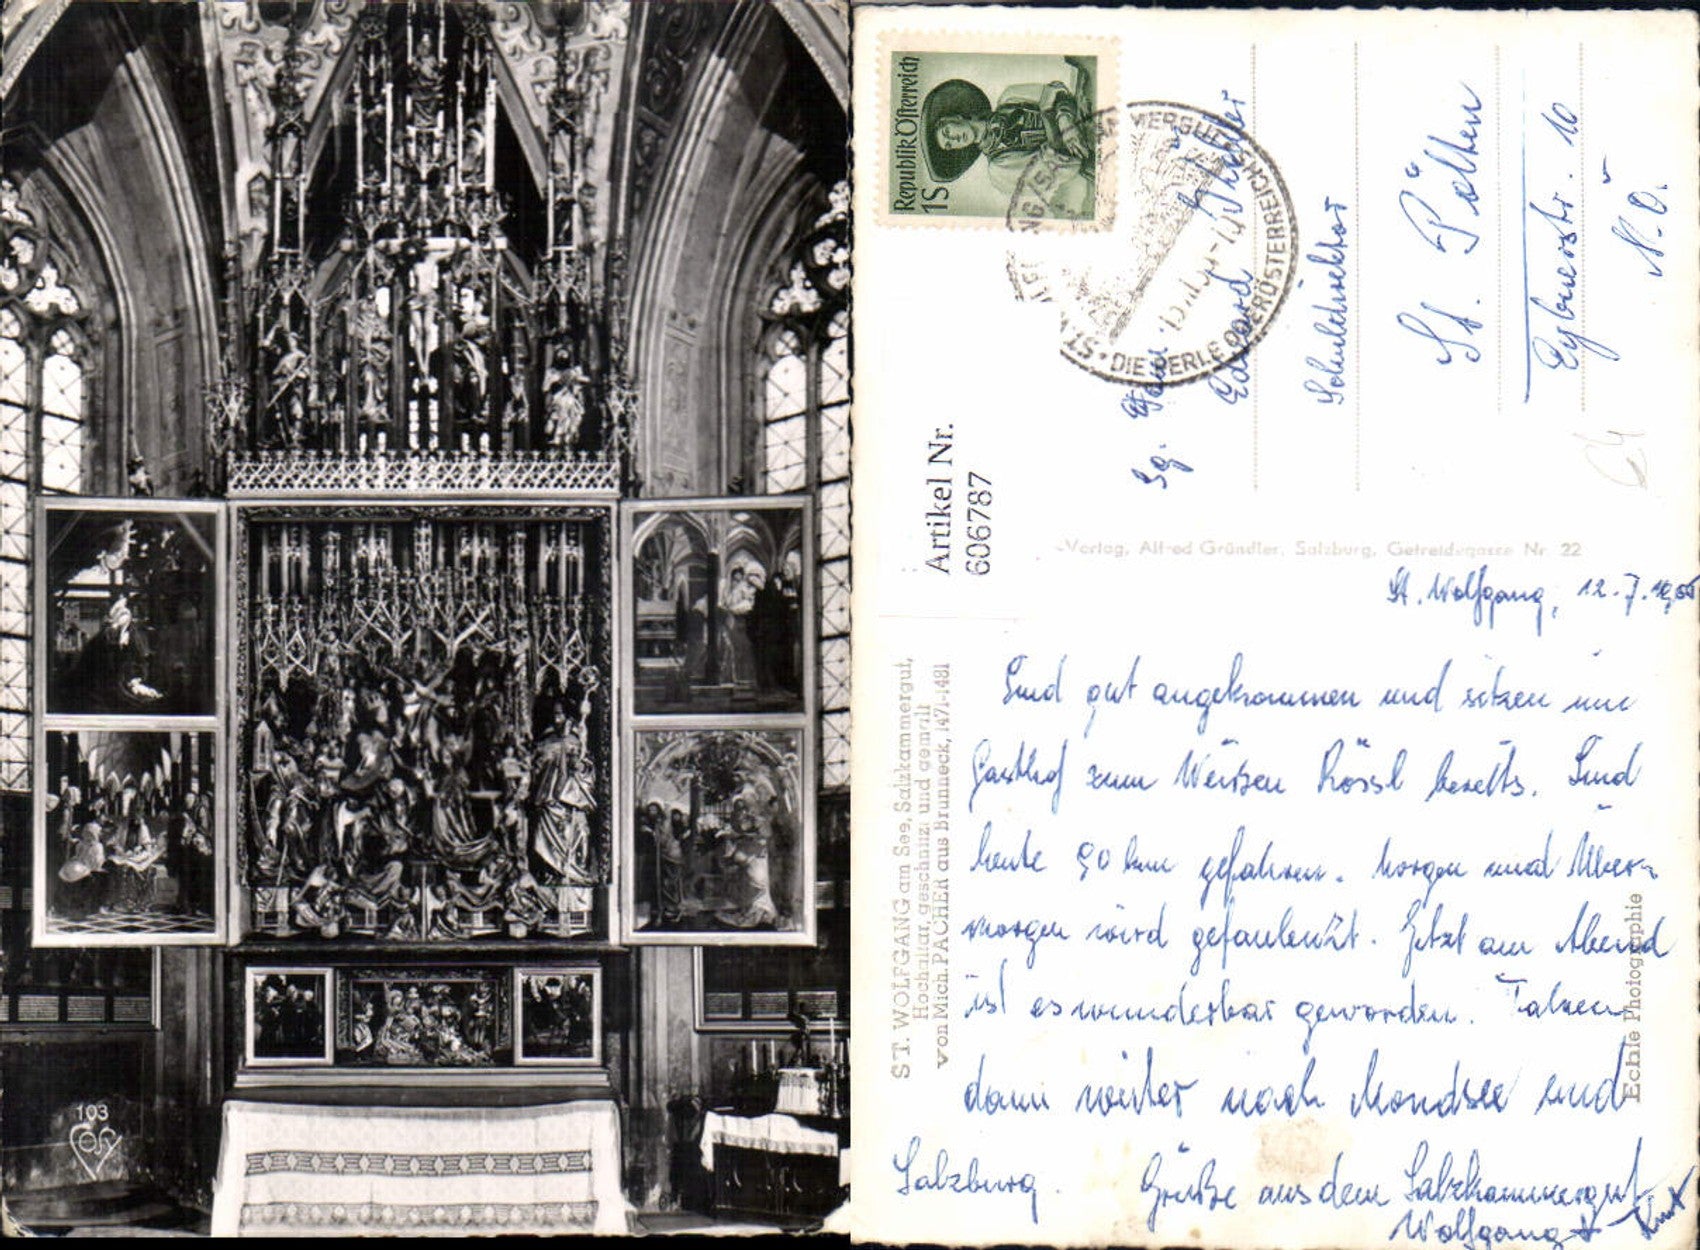 103
COSY
Republik Österreich
1S
DIE PERLE OBERÖSTERREICH
Artikel Nr.
606787
Sg. Fam.
Eduard
Schuldirektor
St. Pölten
Eybnerstr. 10
N.Ö.
Verlag, Alfred Gründler, Salzburg, Getreidegasse Nr. 22
ST. WOLFGANG am See, Salzkammergut,
Hochaltar, geschnitzt und gemalt
von Mich. PACHER aus Brunneck, 1471-1481
Echte Photographie
St. Wolfgang, 12.7.
Sind gut angekommen und sitzen im
Gasthof zum Weißen Rössl bereits. Sind
heute 90 km gefahren. Morgen und Über-
morgen wird gefaulenzt. Jetzt am Abend
ist es wunderbar geworden. Fahren
dann weiter nach Mondsee und
Salzburg. Grüße aus dem Salzkammergut
Wolfgang + Kurt